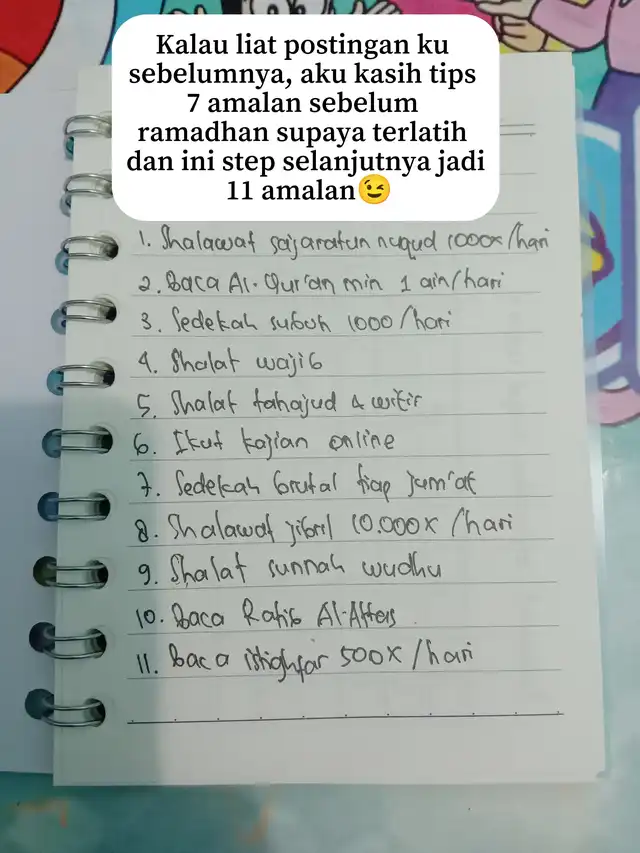 Kalau liat postingan ku
sebelumnya, aku kasih tips
7 amalan sebelum
ramadhan supaya terlatih
dan ini step selanjutnya jadi
11 amalan😉
1. Shalawat sajaratun nuqud 1000x/hari
2. Baca Al-Qur'an min 1 ain/hari
3. Sedekah subuh 1000/hari
4. Shalat wajib
5. Shalat tahajud & witir
6. Ikut kajian online
7. Sedekah brutal tiap jum'at
8. Shalawat jibril 10.000x/hari
9. Shalat sunnah wudhu
10. Baca Ratib Al-Attas
11. Baca istighfar 500x/hari